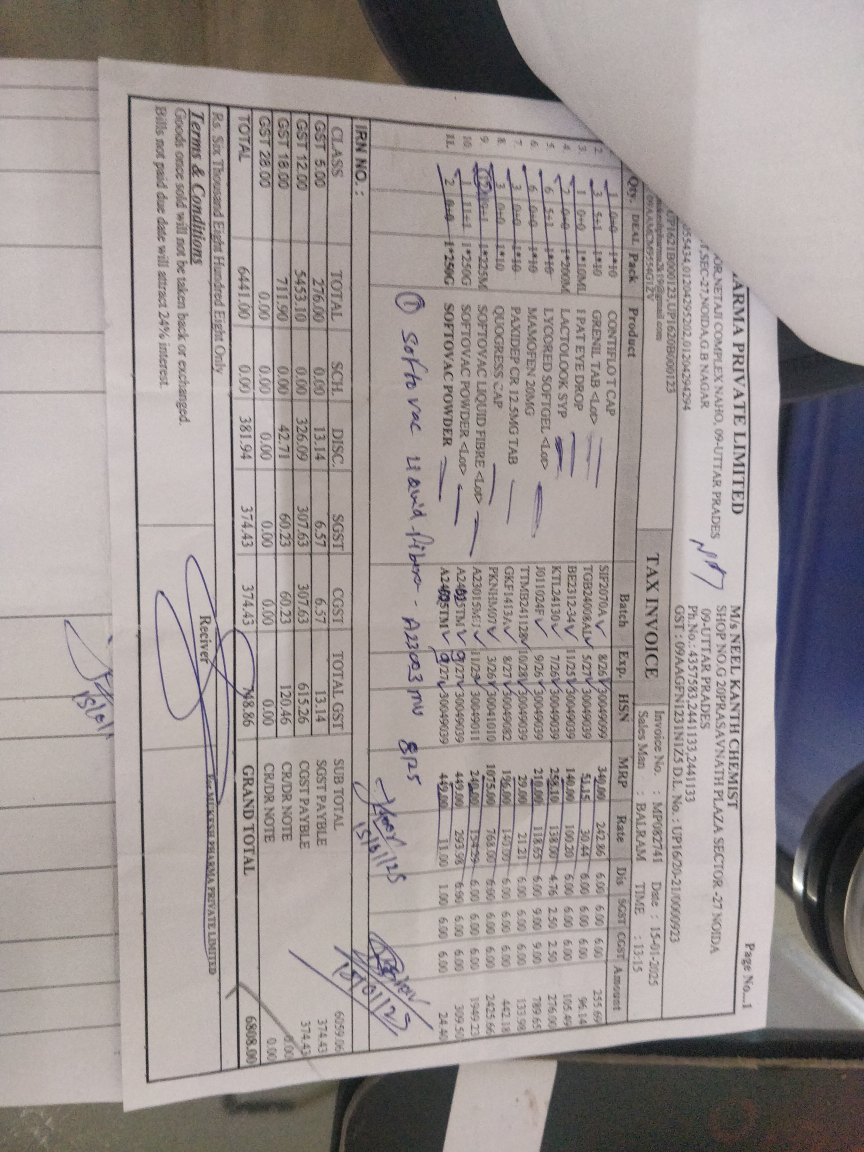 Page No...1
HARMA PRIVATE LIMITED
OOR,NETAJI COMPLEX NAHO, 09-UTTAR PRADES
T,SEC-27,NOIDA,G.B NAGAR
055434,01204295202,01204294294
UP1621B000123,UP1620B000123
M/s NEEL KANTH CHEMIST
SHOP NO.G 20PRASAVNATH PLAZA SECTOR -27 NOIDA
09-UTTAR PRADES
Ph.No.:4357583,2441133,2441133
GST : 09AAGFN1231N1Z5 D.L. No. : UP16/20-21/0000923
TAX INVOICE
Invoice No. : MP082741 Date : 15-01-2025
Sales Man : BALRAM TIME : 13:15
Qty. DEAL Pack Product Batch Exp. HSN MRP Rate Dis SGST CGST Amount
1 0+0 1*10 CONTIFLO T CAP SIF2070A 8/26 30049099 340.00 242.86 6.00 6.00 6.00 255.69
2. 3 5+1 1*10 GRENIL TAB <Lot> 5/27 30049039 51.15 30.44 6.00 6.00 6.00 96.14
3. 1 0+0 1*10ML I PAT EYE DROP BE2312-34 11/25 30049039 140.00 100.20 6.00 6.00 6.00 105.49
4. 2 0+0 1*200M LACTOLOOK SYP KTL24130 7/26 30049039 258.10 138.00 4.76 2.50 2.50 276.00
5. 6 5+1 1*10 LYCORED SOFTGEL <Lot> J011024F 9/26 30049039 210.00 118.65 6.00 9.00 9.00 789.65
6. 6 0+0 1*10 MAMOFEN 20MG TTMB241128 10/28 30049039 29.00 21.21 6.00 6.00 6.00 133.98
7. 3 0+0 1*10 PAXIDEP CR 12.5MG TAB GKF1413A 8/27 30049082 196.00 140.00 6.00 6.00 6.00 442.18
8. 3 0+0 1*10 QUOGRESS CAP PKNHM07 3/26 30041010 1075.00 768.00 6.00 6.00 6.00 2425.66
9. 1*225M SOFTOVAC LIQUID FIBRE <Lot> 30049011 240.00 6.00 6.00 6.00 1949.23
10. 1 11+1 1*250G SOFTOVAC POWDER <Lot> 9/27 30049039 449.00 293.98 6.00 6.00 6.00 309.50
11. 2 0+0 1*250G SOFTOVAC POWDER 9/27 30049039 449.00 11.00 1.00 6.00 6.00 24.40
① Softovac Liquid Fibre - A23003 MU 8/25
15/01/25
15/01/25
IRN NO. :
CLASS TOTAL SCH. DISC. SGST CGST TOTAL GST
GST 5.00 276.00 0.00 13.14 6.57 6.57 13.14
GST 12.00 5453.10 0.00 326.09 307.63 307.63 615.26
GST 18.00 711.90 0.00 42.71 60.23 60.23 120.46
GST 28.00 0.00 0.00 0.00 0.00 0.00 0.00
TOTAL 6441.00 0.00 381.94 374.43 374.43 748.86
SUB TOTAL 6059.06
SGST PAYBLE 374.43
CGST PAYBLE 374.43
CR/DR NOTE 0.00
CR/DR NOTE 0.00
GRAND TOTAL 6808.00
Rs. Six Thousand Eight Hundred Eight Only
Terms & Conditions
Goods once sold will not be taken back or exchanged.
Bills not paid due date will attract 24% interest.
Reciver
For MUKESH PHARMA PRIVATE LIMITED